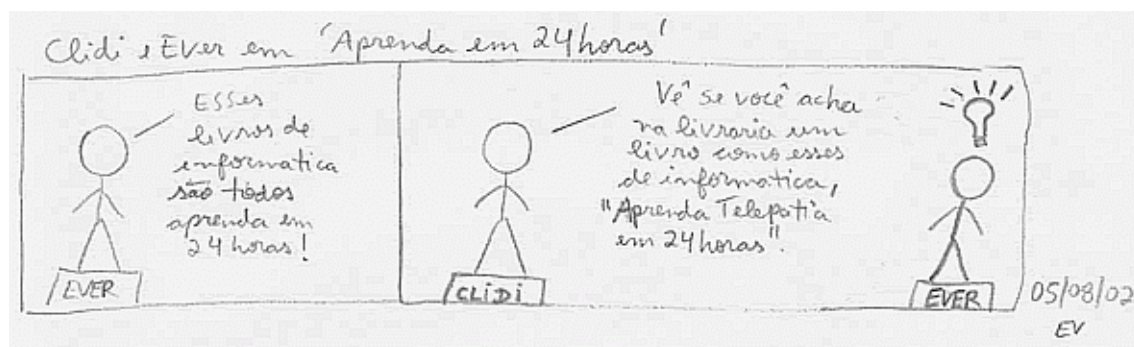 Clidi e Ever em 'Aprenda em 24 horas'
Esses
livros de
informática
são todos
aprenda em
24 horas!
EVER
Vê se você acha
na livraria um
livro como esses
de informática,
"Aprenda Telepatia
em 24 horas".
CLiDi
EVER
05/08/02
EV